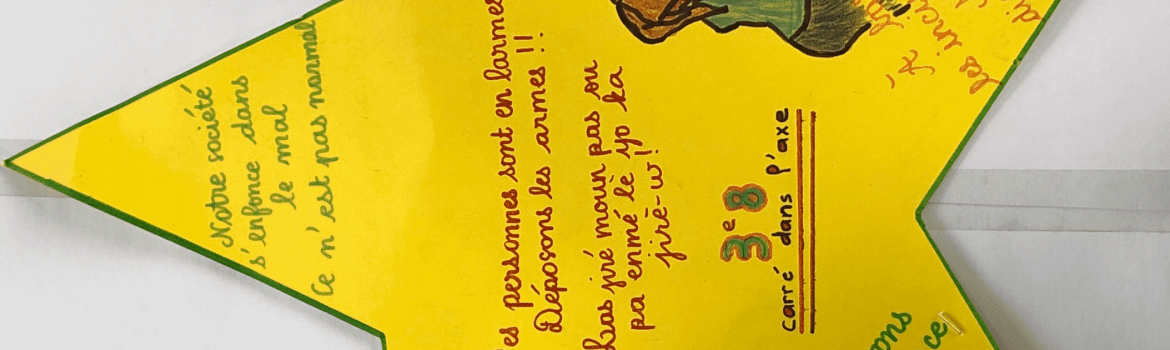 Notre société
s'enfonce dans
le mal
Ce n'est pas normal
es personnes sont en larmes
Déposons les armes !!
Pas jiré moun pas ou
pa enmé lè yo ka
jiré-w!
3e8
carré dans l'axe
Les inci
ons
ce